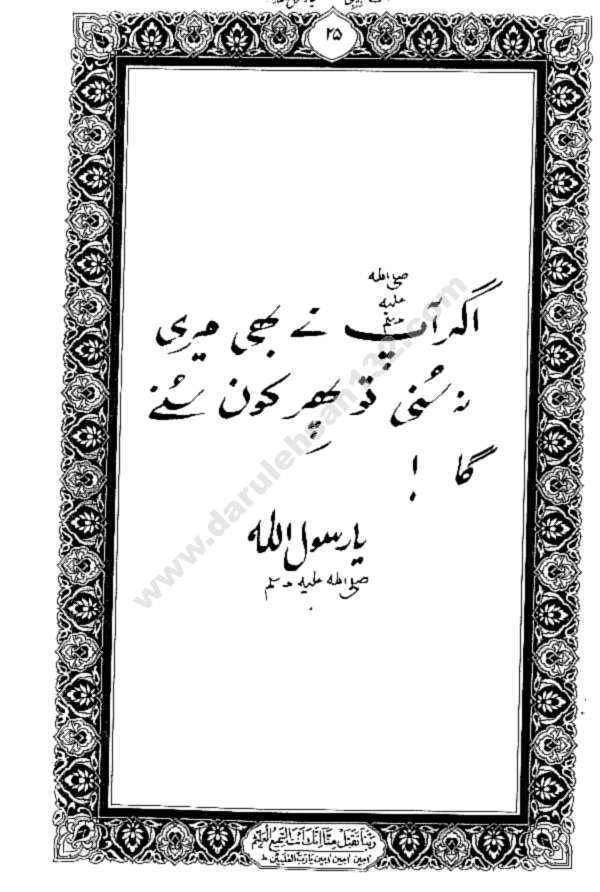 ۲۵
صلی اللہ
علیہ
وسلم
اگر آپ نے بھی میری
نہ سُنی تو پھر کون سُنے
گا !
یا رسول اللہ
صلی اللہ علیہ وسلم
www.darulehsan132.com
ربنا تقبل منا انك انت السميع العليم
امين امين امين يا رب العلمين ط